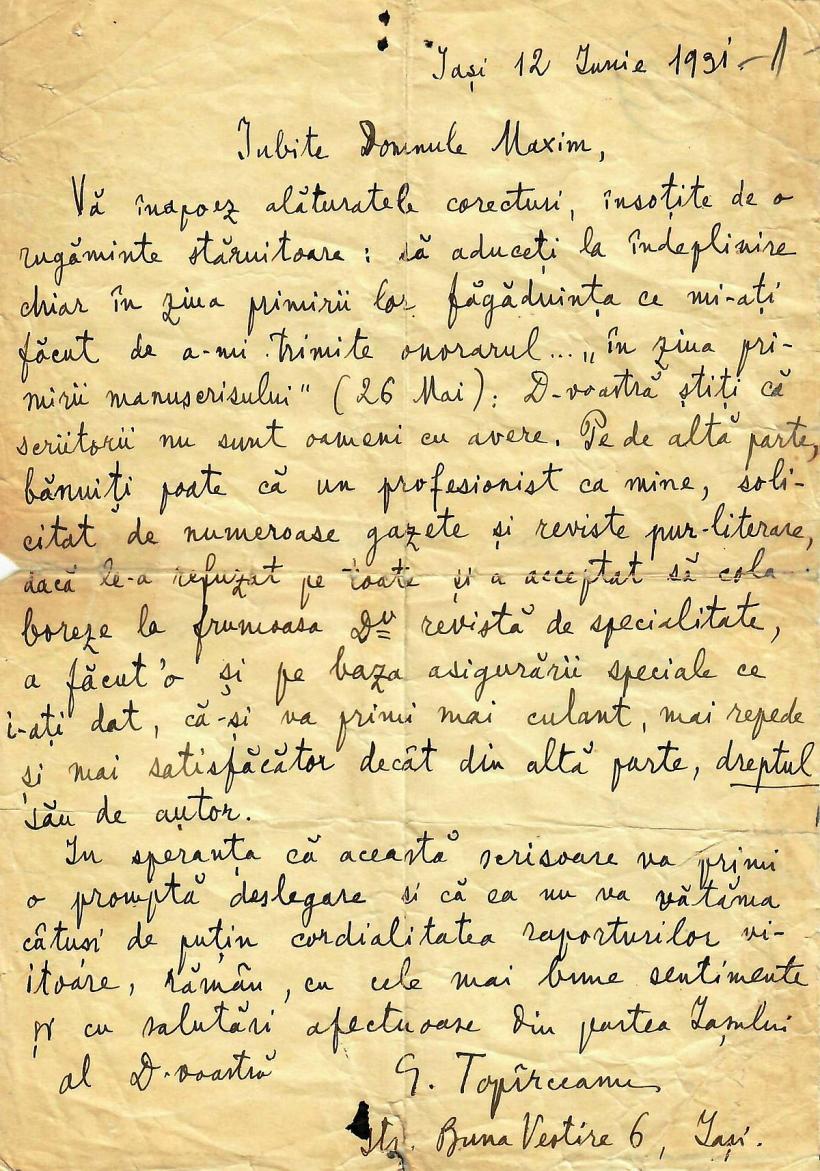 Iași 12 Iunie 1931.
Iubite Domnule Maxim,
Vă înapoez alăturatele corecturi, însoțite de o
rugăminte stăruitoare: să aduceți la îndeplinire
chiar în ziua primirii lor făgăduința ce mi-ați
făcut de a-mi trimite onorarul... „în ziua pri-
mirii manuscrisului" (26 Mai): D-voastră știți că
scriitorii nu sunt oameni cu avere. Pe de altă parte,
bănuiți poate că un profesionist ca mine, soli-
citat de numeroase gazete și reviste pur-literare,
dacă le-a refuzat pe toate și a acceptat să cola-
boreze la frumoasa Dv revistă de specialitate,
a făcut'o și pe baza asigurării speciale ce
i-ați dat, că-și va primi mai culant, mai repede
și mai satisfăcător decât din altă parte, dreptul
său de autor.
In speranța că această scrisoare va primi
o promptă deslegare si că ea nu va vătăma
câtuși de puțin cordialitatea raporturilor vi-
itoare, rămân, cu cele mai bune sentimente
și cu salutări afectuoase din partea Iașului
al D-voastră
G. Topîrceanu
Str. Buna Vestire 6, Iași.